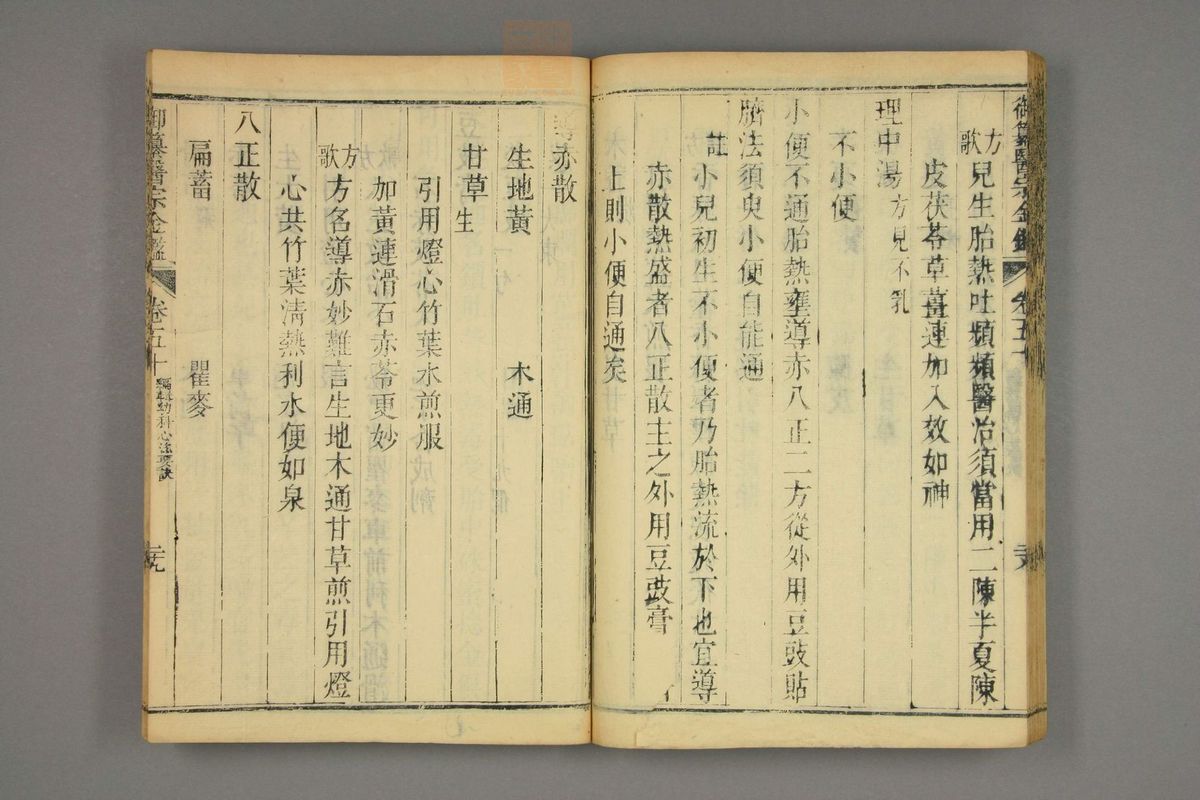 御纂醫宗金鑑 卷五十 二八
方歌 兒生胎熱吐頻頻醫治須當用二陳半夏陳
皮茯苓草薑連加入效如神
理中湯方見不乳
不小便
小便不通胎熱壅導赤八正二方從外用豆豉貼
臍法須臾小便自能通
註 小兒初生不小便者乃胎熱流於下也宜導
赤散熱盛者八正散主之外用豆豉膏
上則小便自通矣
導赤散
生地黃 木通
甘草生
引用燈心竹葉水煎服
方歌 方名導赤妙難言生地木通甘草煎引用燈
加黃連滑石赤苓更妙
心共竹葉淸熱利水便如泉
八正散
扁蓄 瞿麥
御纂醫宗金鑑 卷五十 編輯幼科心法要訣 二九